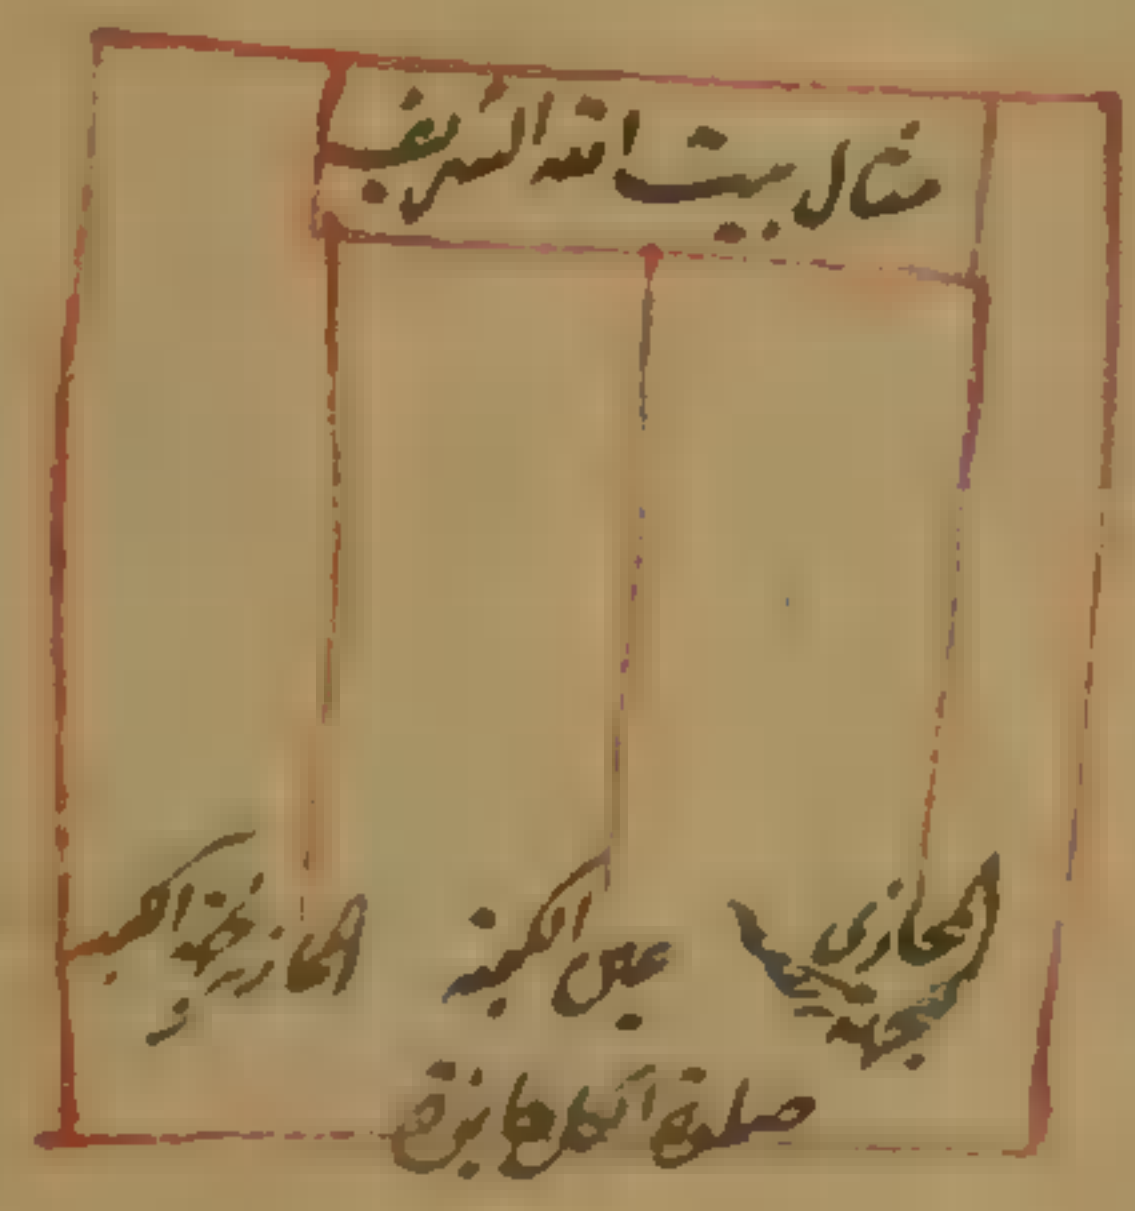 مثال بيت الله الشريف
المحاذى بجهة
عين الكعبة
المحاذى لجهة الكعبة
صلوة الكل جايزة